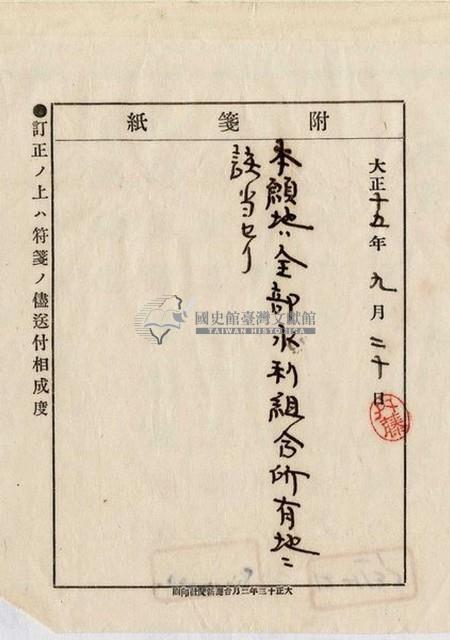 附箋紙
大正十五年九月二十日
本願地ハ全部水利組合所有地ニ
該当セリ
●訂正ノ上ハ符箋ノ儘送付相成度
國史館臺灣文獻館
TAIWAN HISTORICA
大正十三年三月台灣新聞社印刷